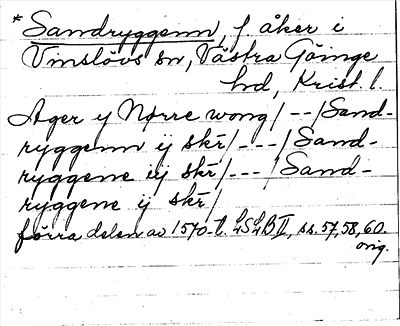 * Sandryggenn, f åker i
Vinslövs sn, Västra Göinge
hd, Krist. l.
Ager y Nørre wong/--/Sand-
ryggenn ij skr̄/---/Sand-
ryggene iij skr̄/---/Sand-
ryggene ij skr̄/
förra delen av 1570-t. LSLB II, ss. 57, 58, 60.
orig.